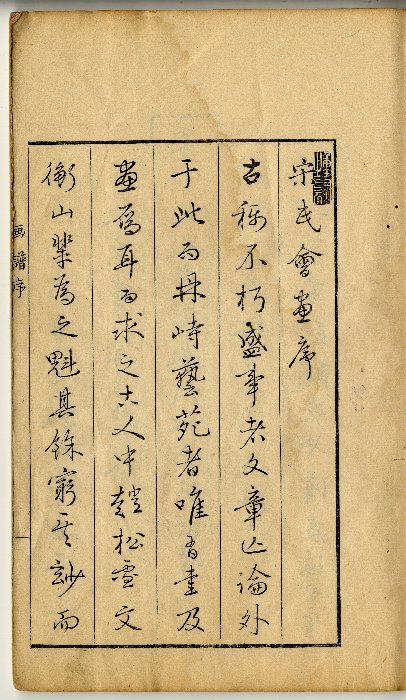 宋氏會畫序
古稱不朽盛事者文章亾論外
于此而峙藝苑者唯有書及
畫爲耳而求之古人中趙松雪文
衡山輩爲之魁其餘窮其玅而
画譜序